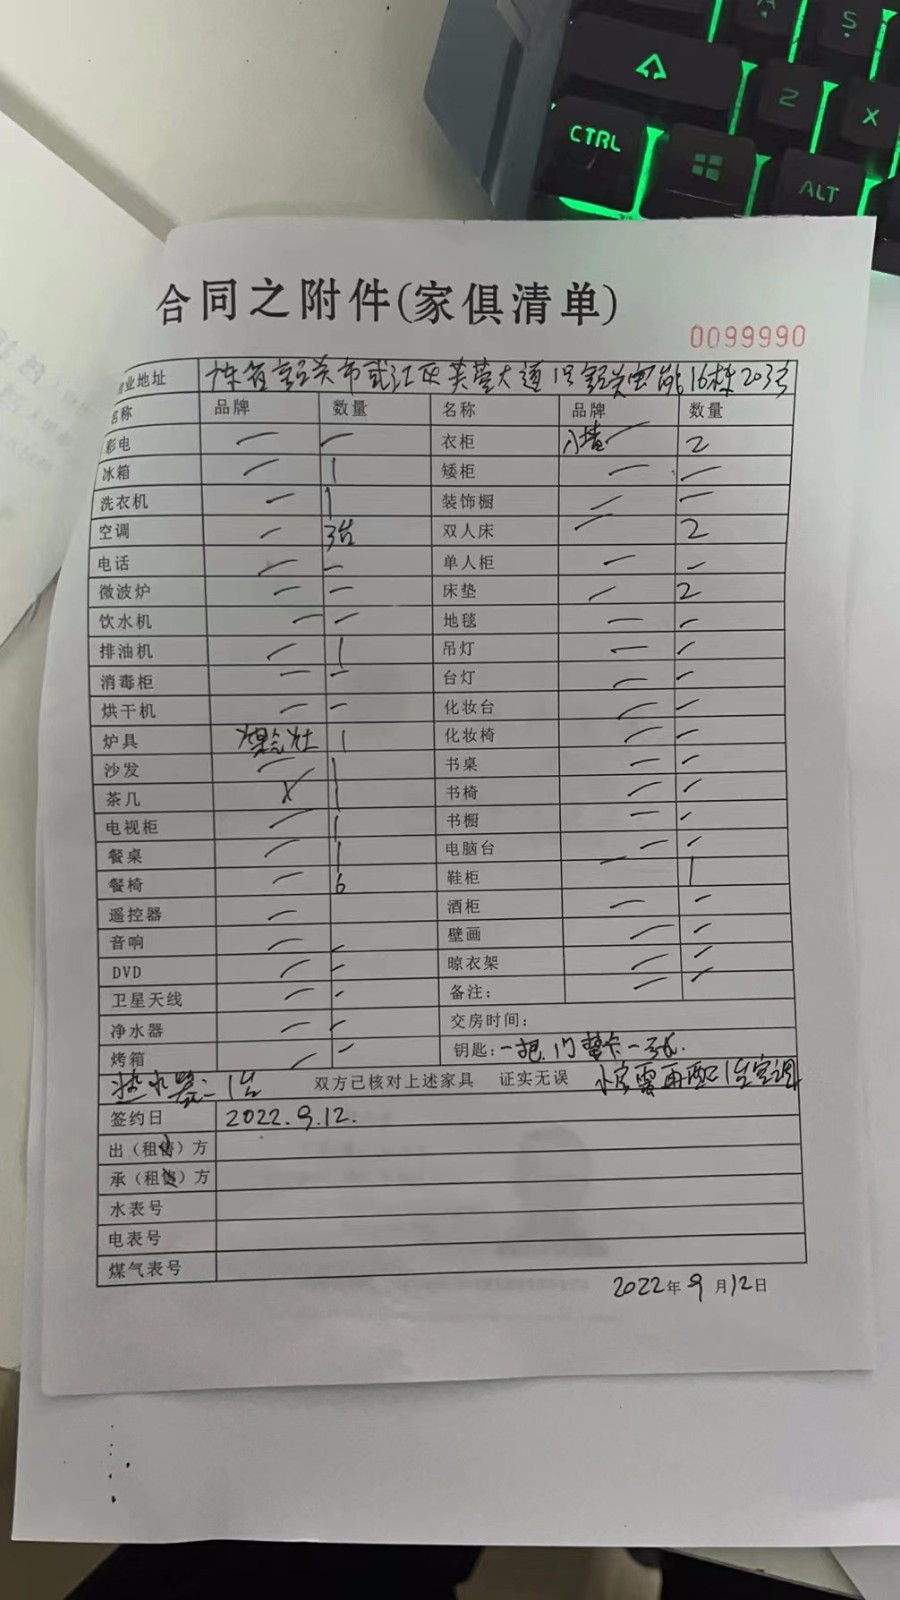 A
S
Z
X
CTRL
ALT
合同之附件(家俱清单)
0099990
业地址 广东省韶关市武江区芙蓉大道1号韶关 16栋203号
名称 品牌 数量 名称 品牌 数量
彩电 — — 衣柜 — 2
冰箱 — 1 矮柜 — —
洗衣机 — 1 装饰橱 — —
空调 — 3台 双人床 — 2
电话 — — 单人柜 — —
微波炉 — — 床垫 — 2
饮水机 — — 地毯 — —
排油机 — 1 吊灯 — —
消毒柜 — — 台灯 — —
烘干机 — — 化妆台 — —
炉具 煤气灶 1 化妆椅 — —
沙发 — 1 书桌 — —
茶几 1 书椅 — —
电视柜 — 1 书橱 — —
餐桌 — 1 电脑台 — —
餐椅 — 6 鞋柜 — 1
遥控器 — 酒柜 — —
音响 — — 壁画 — —
DVD — — 晾衣架 — —
卫星天线 — — 备注: — —
净水器 — — 交房时间:
烤箱 — — 钥匙:一把.门禁卡一张.
热水器:1台 双方己核对上述家具 证实无误 小房需再配1台空调
签约日 2022.9.12.
出(租)方
承(租)方
水表号
电表号
煤气表号
2022年9月12日